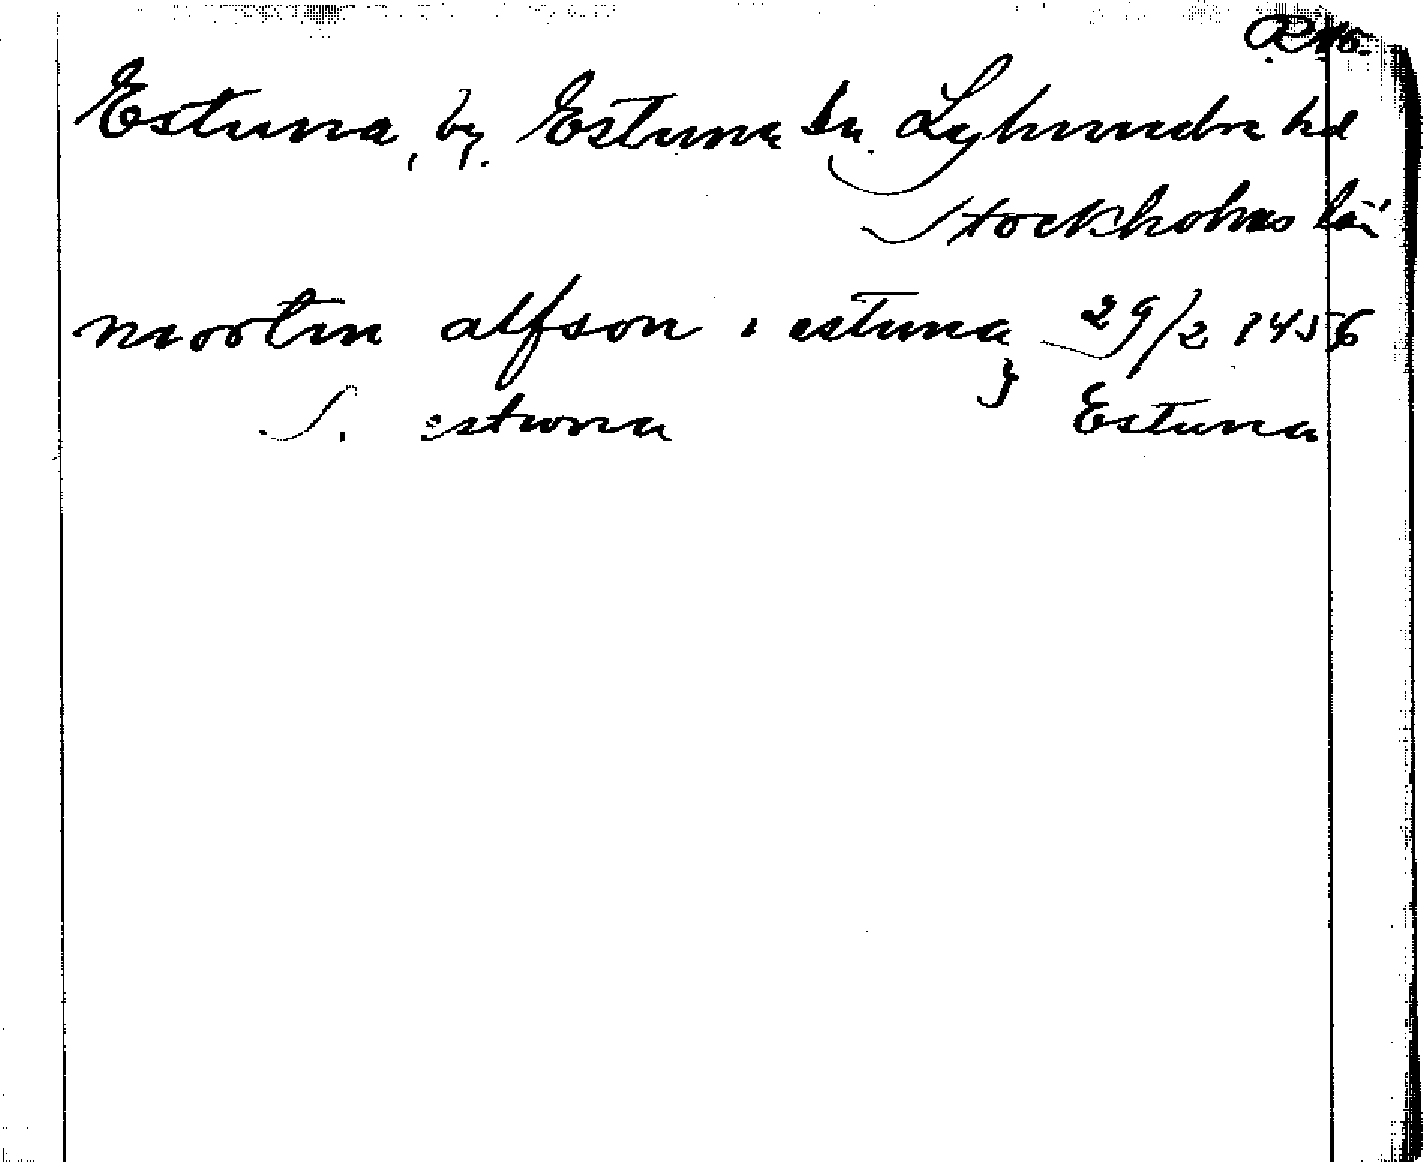 Estuna, by. Estuna sn. Lyhundra hd
Stockholms län
moorten alfson i estuna 29/2 1456
S. estwna } Estuna